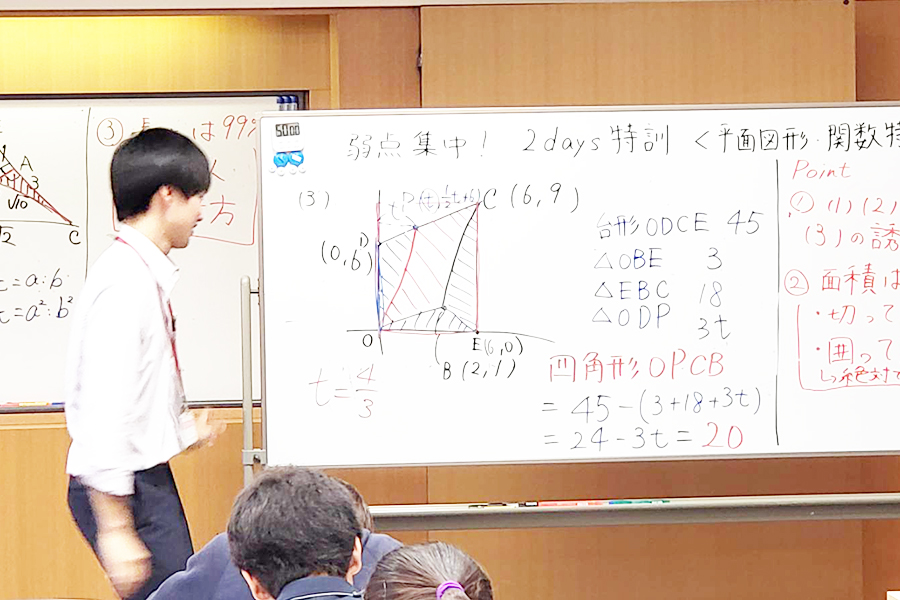 弱点集中! 2days特訓 <平面図形・関数特
(3)
C (6,9)
D
(0,6)
O
E (6,0)
B (2,1)
t = 4/3
台形ODCE 45
△OBE 3
△EBC 18
△ODP 3t
四角形OPCB
= 45-(3+18+3t)
= 24-3t = 20
Point
① (1)(2)
(3)の誘
② 面積は
・切って
・囲って
↳絶対で
5000
③
は99%
方
A
3
√10
C
= a:b
= a²:b²